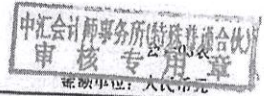 中汇会计师事务所(特殊普通合伙)
审核专用章
03表
金额单位:人民币元